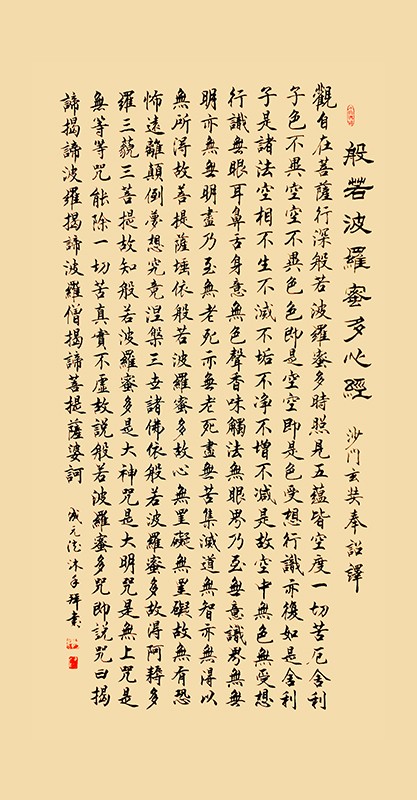 般若波羅蜜多心經
沙門玄奘奉詔譯
觀自在菩薩行深般若波羅蜜多時照見五蘊皆空度一切苦厄舍利
子色不異空空不異色色即是空空即是色受想行識亦復如是舍利
子是諸法空相不生不滅不垢不净不增不減是故空中無色無受想
行識無眼耳鼻舌身意無色聲香味觸法無眼界乃至無意識界無無
明亦無無明盡乃至無老死亦無老死盡無苦集滅道無智亦無得以
無所得故菩提薩埵依般若波羅蜜多故心無罣礙無罣礙故無有恐
怖遠離顛倒夢想究竟涅槃三世諸佛依般若波羅蜜多故得阿耨多
羅三藐三菩提故知般若波羅蜜多是大神咒是大明咒是無上咒是
無等等咒能除一切苦真實不虛故說般若波羅蜜多咒即說咒曰揭
諦揭諦波羅揭諦波羅僧揭諦菩提薩婆訶
成元浩沐手拜書